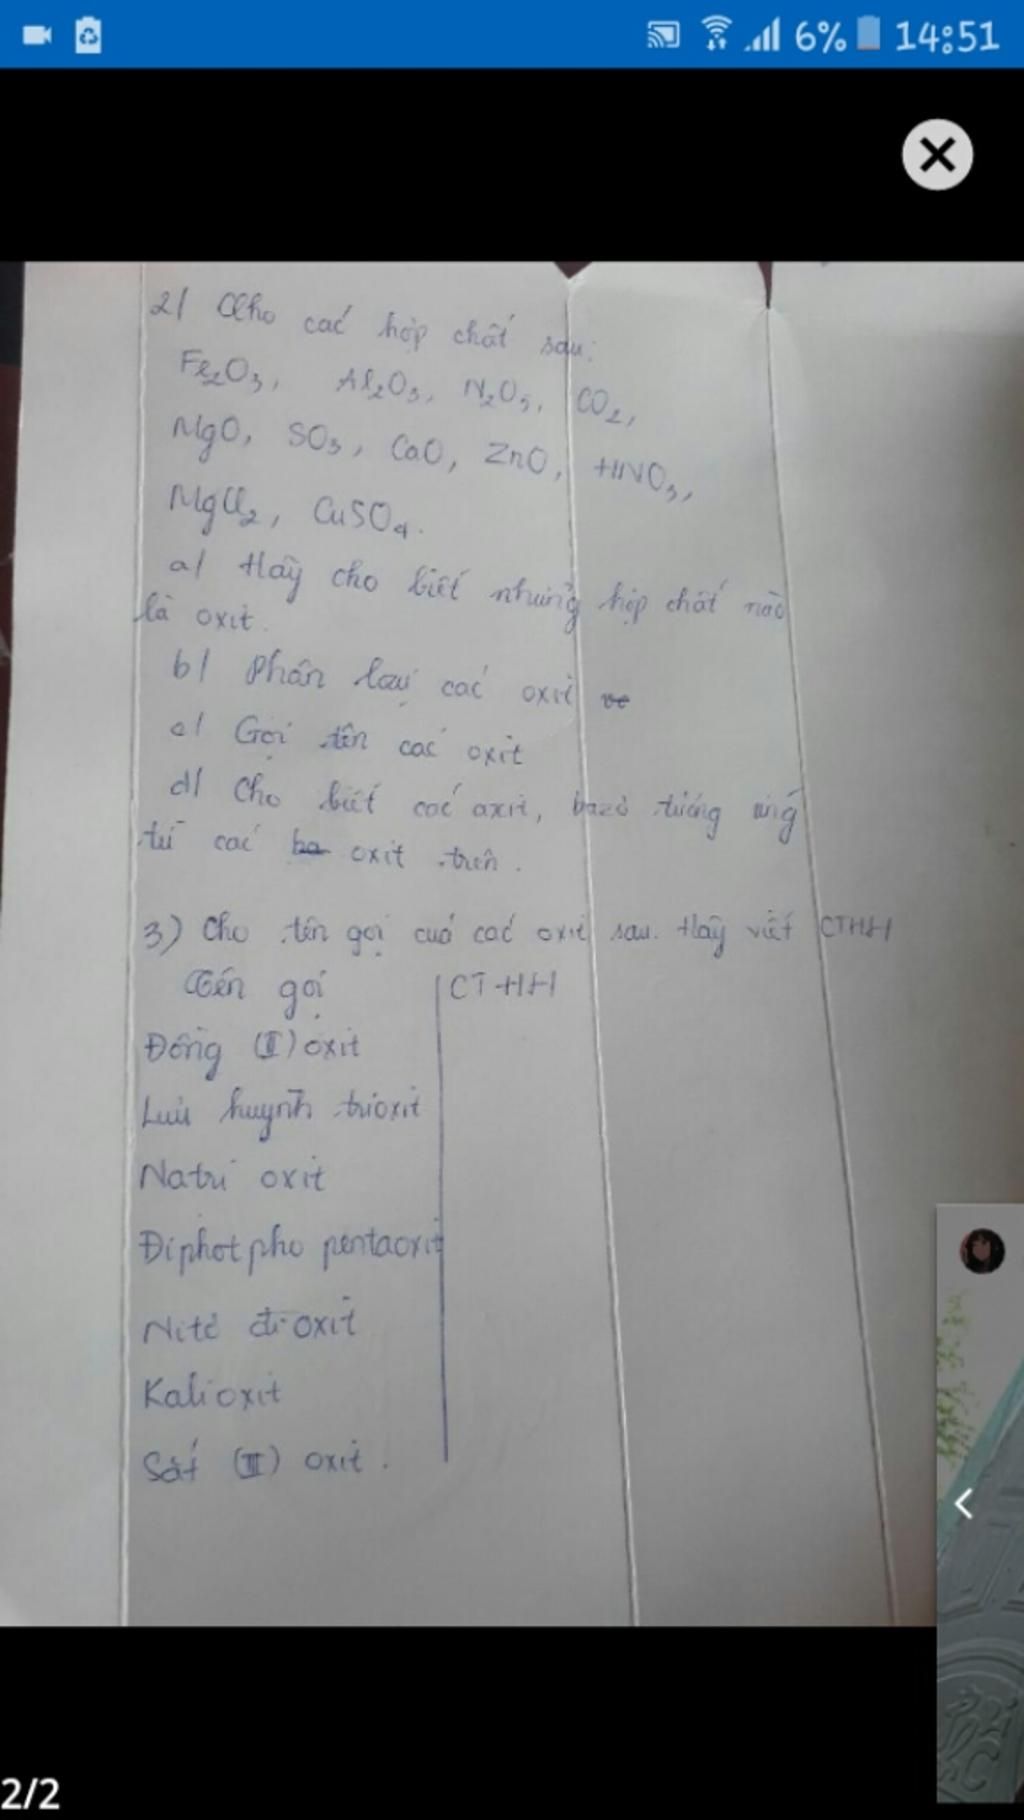 6% 14:51
2/ Cho các hợp chất sau:
Fe₂O₃, Al₂O₃, N₂O₅, CO₂,
MgO, SO₃, CaO, ZnO, HNO₃,
MgCl₂, CuSO₄.
a/ Hãy cho biết những hợp chất nào
là oxit.
b/ Phân loại các oxit
c/ Gọi tên các oxit
d/ Cho biết các axit, bazơ tương ứng
từ các oxit trên.
3) Cho tên gọi của các oxit sau. Hãy viết CTHH
Tên gọi CTHH
Đồng (II) oxit
Lưu huỳnh trioxit
Natri oxit
Điphotpho pentaoxit
Nitơ đi oxit
Kali oxit
Sắt (III) oxit.
2/2